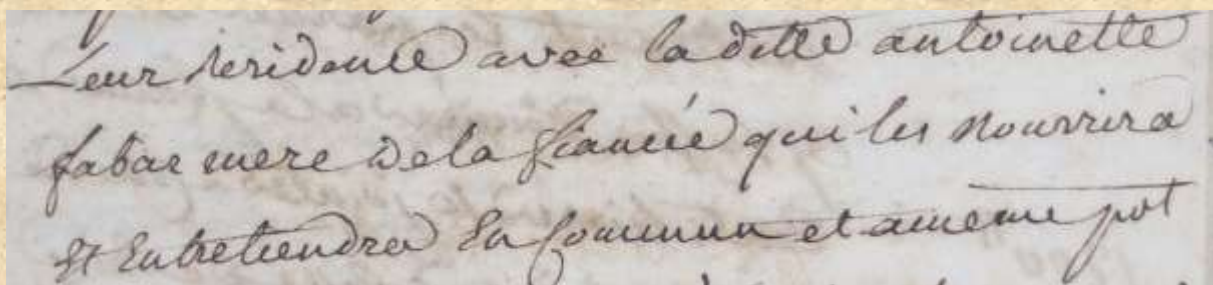 Leur residence avec la ditte antoinette
fabar mere de la fiancée qui les nourrira
Et Entretiendra En Commun et a meme pot